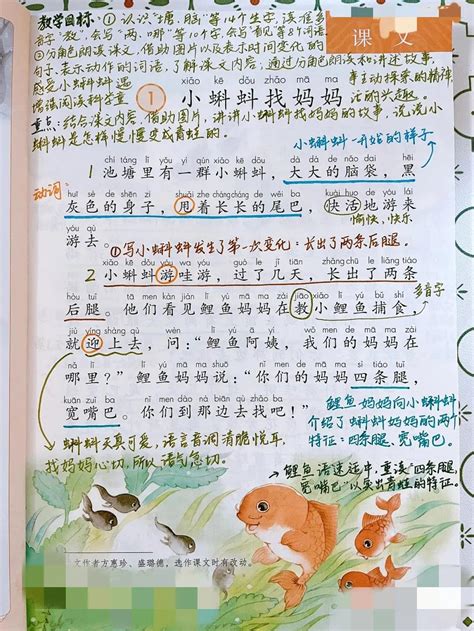 教学目标:①认识“塘、脑”等14个生字,读准多
音字“教”,会写“两、哪”等10个字,会写“看见”等8个词语。
②分角色朗读课文,借助图片以及表示时间变化的
句子、表示动作的词语,了解课文内容;通过分角色朗读和讲述故事,
感受小蝌蚪遇事主动探索的精神,
增强阅读科学童话的兴趣。
重点:结合课文内容,借助图片,讲讲小蝌蚪找妈妈的故事,说说小
蝌蚪是怎样慢慢变成青蛙的。
课文
xiǎo kē dǒu zhǎo mā ma
① 小蝌蚪找妈妈
小蝌蚪一开始的样子
chí táng lǐ yǒu yì qún xiǎo kē dǒu dà dà de nǎo dai hēi
1 池塘里有一群小蝌蚪,大大的脑袋,黑
动词
huī sè de shēn zi shuǎi zhe cháng cháng de wěi ba kuài huo de yóu lái
灰色的身子,甩着长长的尾巴,快活地游来
愉快、快乐
yóu qù
游去。
①写小蝌蚪发生了第一次变化:长出了两条后腿。
xiǎo kē dǒu yóu wa yóu guò le jǐ tiān zhǎng chū le liǎng tiáo
2 小蝌蚪游哇游,过了几天,长出了两条
hòu tuǐ tā men kàn jiàn lǐ yú mā ma zài jiāo xiǎo lǐ yú bǔ shí
后腿。他们看见鲤鱼妈妈在教小鲤鱼捕食,
多音字
jiù yíng shàng qù wèn lǐ yú ā yí wǒ men de mā ma zài
就迎上去,问:“鲤鱼阿姨,我们的妈妈在
nǎ lǐ lǐ yú mā ma shuō nǐ men de mā ma sì tiáo tuǐ
哪里?”鲤鱼妈妈说:“你们的妈妈四条腿,
kuān zuǐ ba nǐ men dào nà biān qù zhǎo ba
宽嘴巴。你们到那边去找吧!”
鲤鱼妈妈向小蝌蚪
介绍了蝌蚪妈妈的两个
特征:四条腿、宽嘴巴。
蝌蚪天真可爱,语言音调清脆悦耳,
找妈妈心切,所以语气急切。
鲤鱼语速适中,重读“四条腿、
宽嘴巴”以突出青蛙的特征。
文作者方惠珍、盛璐德,选作课文时有改动。